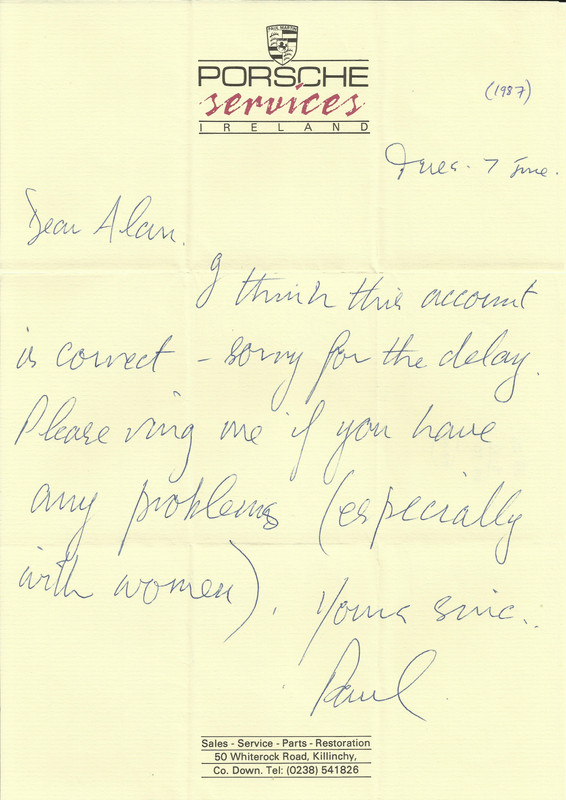 PAUL MARTIN
PORSCHE
services
IRELAND
(1987)
Tues. 7 June.
Dear Alan.
I think this account
is correct - sorry for the delay.
Please ring me if you have
any problems (especially
with women). Yours sinc..
Paul.
Sales - Service - Parts - Restoration
50 Whiterock Road, Killinchy,
Co. Down. Tel: (0238) 541826